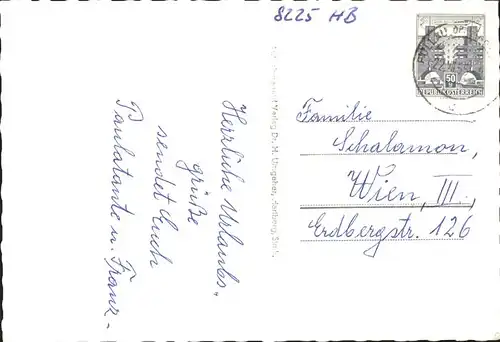 8225 HB
Herrliche Urlaubs-
grüße
sendet Euch
Paulatante u. Franz-
Verlag Dr. M. Ungehar, Hartberg, Stmk.
50
REPUBLIK ÖSTERREICH
Familie
Schalamon,
Wien, III.,
Erdbergstr. 126